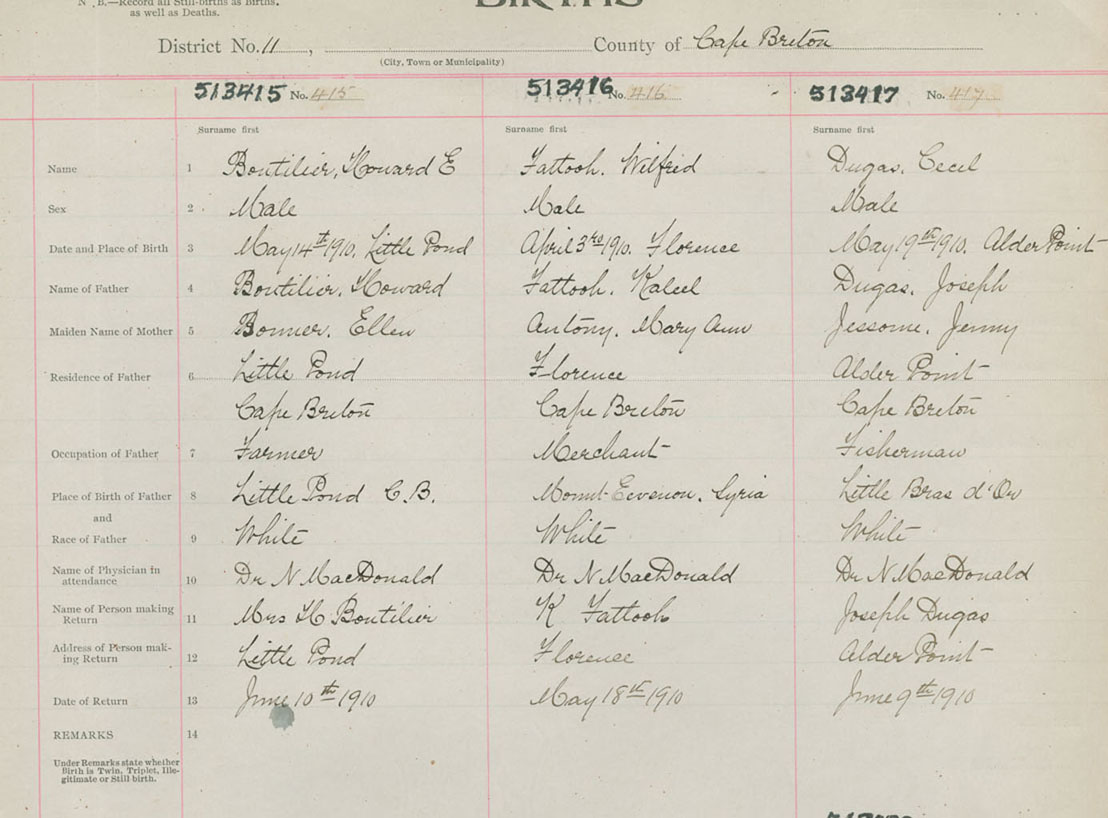 N B.—Record all Still-births as Births,
as well as Deaths.
BIRTHS
District No. 11, County of Cape Breton
(City, Town or Municipality)
513415 No. 415 513416 No. 416 513417 No. 417
Surname first Surname first Surname first
Name 1 Boutilier, Howard E Fattooh. Wilfrid Dugas. Cecil
Sex 2 Male Male Male
Date and Place of Birth 3 May 14th 1910. Little Pond April 3rd 1910. Florence May 19th 1910. Alder Point
Name of Father 4 Boutilier. Howard Fattooh. Kaleel Dugas. Joseph
Maiden Name of Mother 5 Bonner. Ellen Antony. Mary Ann Jessome. Jenny
Residence of Father 6 Little Pond Florence Alder Point
Cape Breton Cape Breton Cape Breton
Occupation of Father 7 Farmer Merchant Fisherman
Place of Birth of Father 8 Little Pond C.B. Mount Syria Little Bras d'Or
and
Race of Father 9 White White White
Name of Physician in
attendance 10 Dr N MacDonald Dr N MacDonald Dr N MacDonald
Name of Person making
Return 11 Mrs H Boutilier K Fattooh Joseph Dugas
Address of Person mak-
ing Return 12 Little Pond Florence Alder Point
Date of Return 13 June 10th 1910 May 18th 1910 June 9th 1910
REMARKS 14
Under Remarks state whether
Birth is Twin, Triplet, Ille-
gitimate or Still birth.